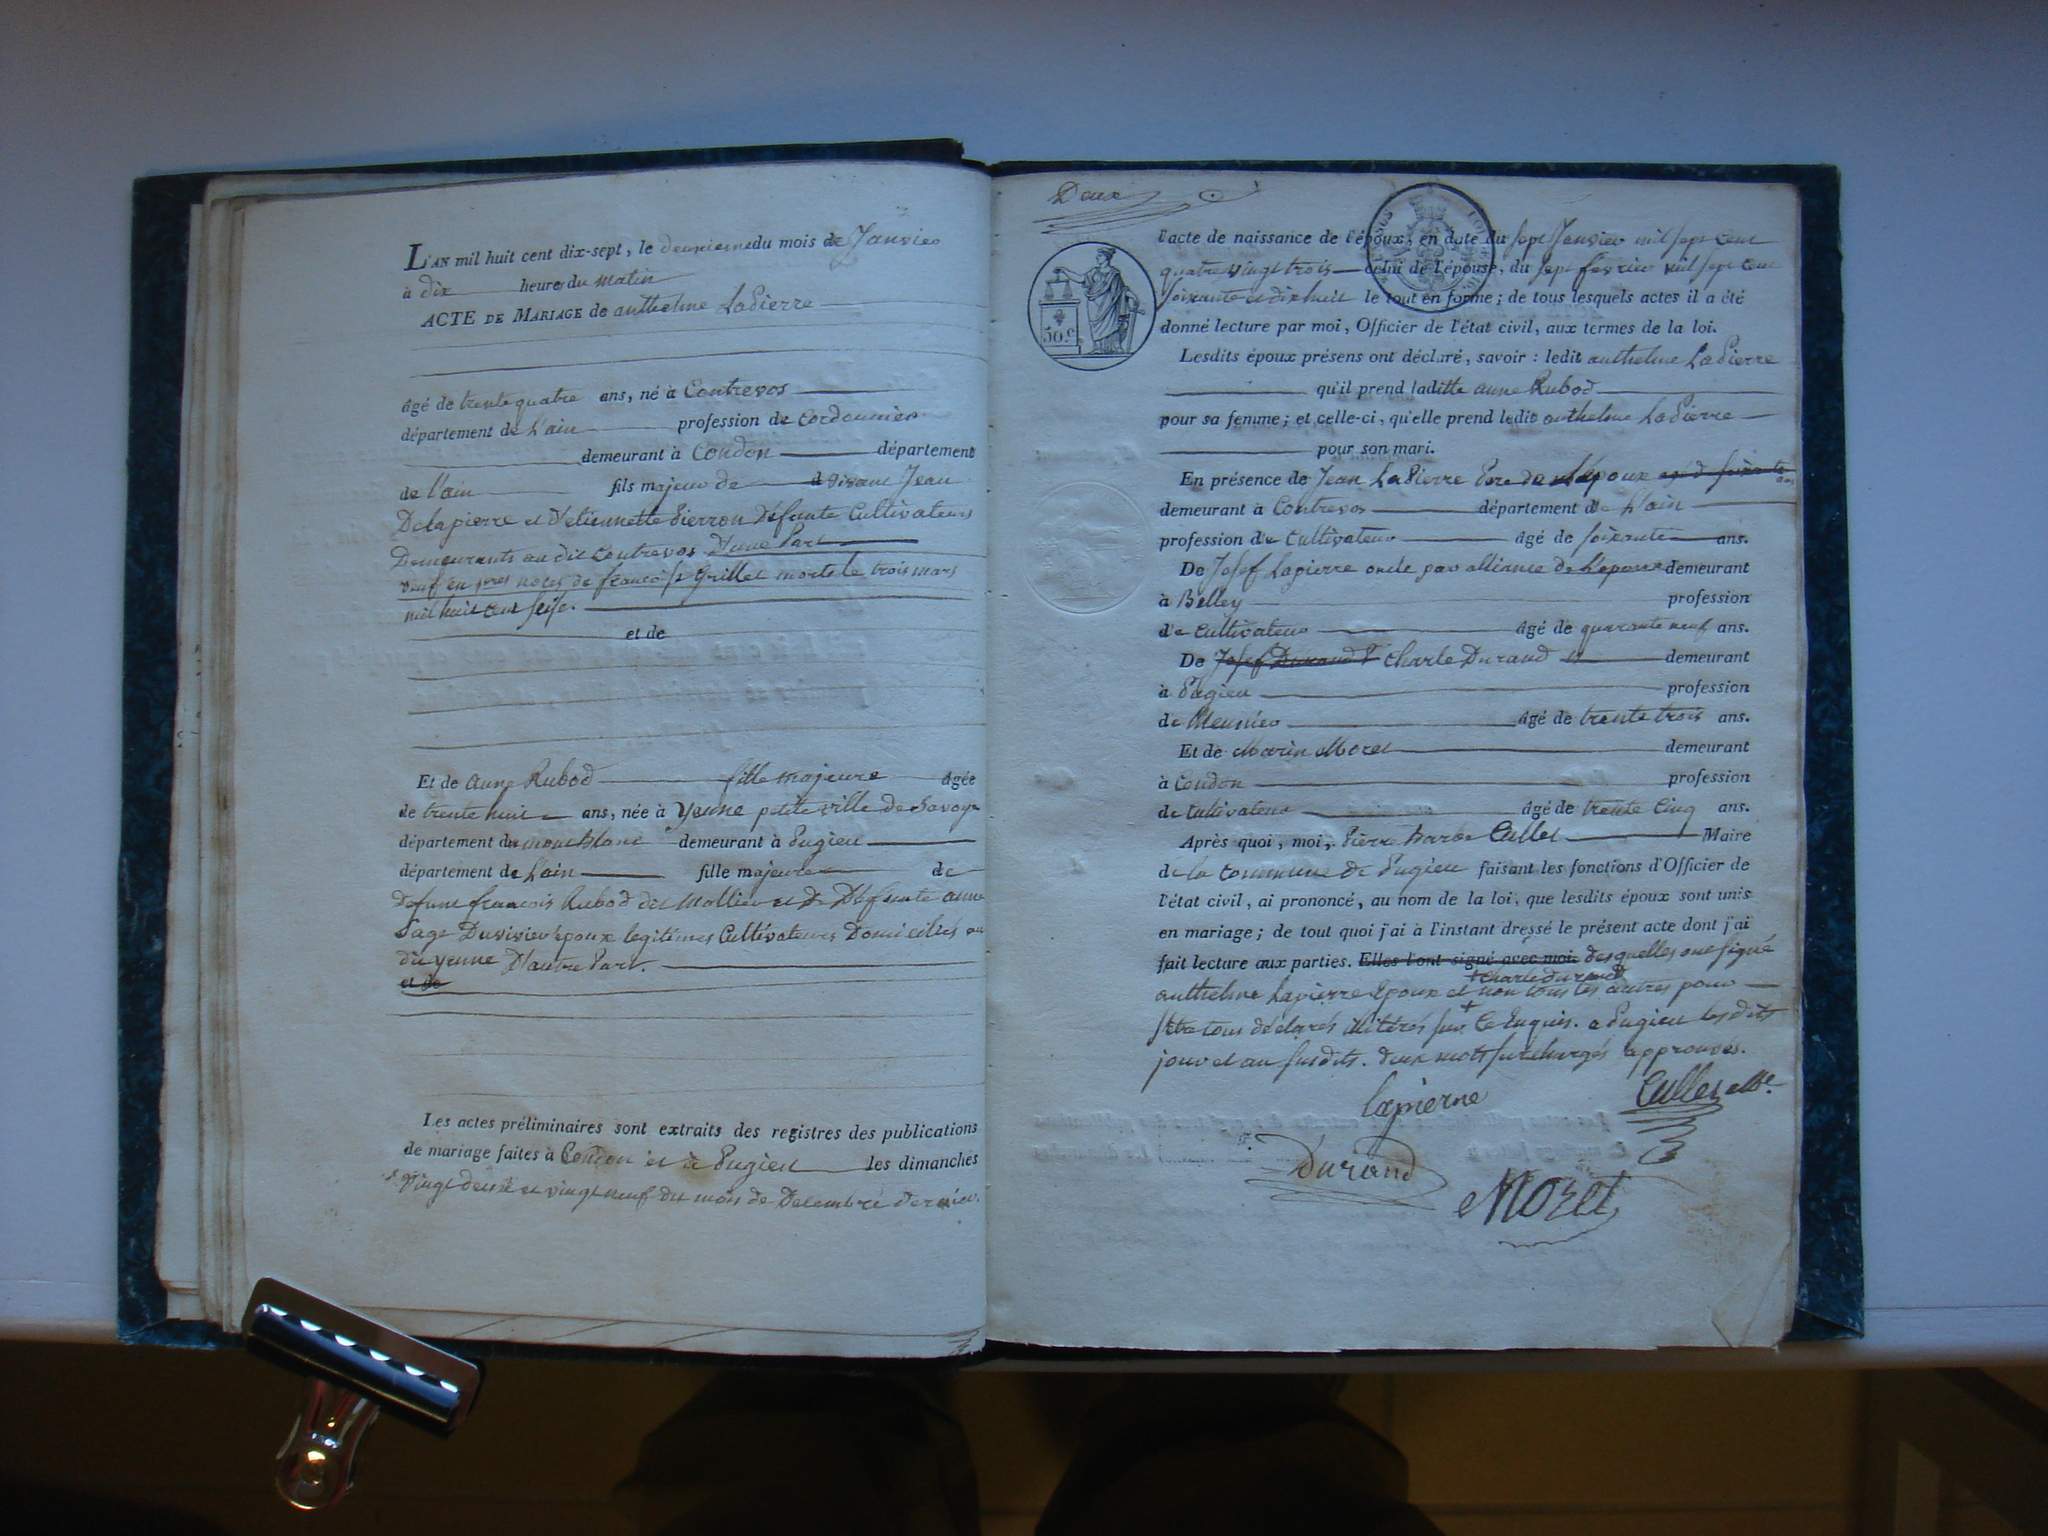 L'AN mil huit cent dix-sept, le deuxieme du mois de Janvier
à dix heures du matin
ACTE DE MARIAGE de anthelme Lapierre
âgé de trente quatre ans, né à Contrevos
département de l'ain profession de Cordonnier
demeurant à Condon département
de l'ain fils majeur de vivant Jean
Delapierre et d'etiennette Pierron défunte Cultivateurs
Demeurants au dit Contrevos D'une Part
veuf en pres noces de francoise Grillet morte le trois mars
mil huit cent seise.
et de
Et de anne Rubod fille majeure âgée
de trente huit ans, née à Yenne petite ville de Savoye
département du mont Blanc demeurant à Pugieu
département de L'ain fille majeure de
Defunt francois Rubod dit Mollier et de Défunte anne
Sage Duvivier époux legitimes Cultivateurs Domiciliés au
dit yenne D'autre Part.
et de
Les actes préliminaires sont extraits des registres des publications
de mariage faites à Condon et à Pugieu les dimanches
vingt deux et vingt neuf du mois de Decembre dernier.
Deux
50 c
l'acte de naissance de l'époux, en date du sept Janvier mil sept cent
quatre vingt trois celui de l'épouse, du sept fevrier mil sept cent
soixante et dix huit le tout en forme; de tous lesquels actes il a été
donné lecture par moi, Officier de l'état civil, aux termes de la loi.
Lesdits époux présens ont déclaré, savoir : ledit anthelme Lapierre
qu'il prend laditte anne Rubod
pour sa femme; et celle-ci, qu'elle prend ledit anthelme Lapierre
pour son mari.
En présence de Jean LaPierre Pere de l'époux agé de soixante ans
demeurant à Contrevos département de L'ain
profession de Cultivateur âgé de soixante ans.
De Josef Lapierre oncle par alliance de L'epouse demeurant
à Belley profession
de Cultivateur âgé de quarante neuf ans.
De Josef Durand Charle Durand demeurant
à Pugieu profession
de Meunier âgé de trente trois ans.
Et de Marin Moret demeurant
à Condon profession
de Cultivateur âgé de trente Cinq ans.
Après quoi, moi, Pierre Barbe Cullet Maire
de la Commune de Pugieu faisant les fonctions d'Officier de
l'état civil, ai prononcé, au nom de la loi, que lesdits époux sont unis
en mariage; de tout quoi j'ai à l'instant dressé le présent acte dont j'ai
fait lecture aux parties. Elles l'ont signé avec moi desquelles ont signé
+ Charle durand
anthelme Lapierre Epoux et + non tous les autres pour
Etre tous déclarés illitérés sur ce Enquis. a Pugieu les dits
jour et an susdits. deux mots surchargés approuvés.
Lapierre
Cullet Me.
Durand
Moret